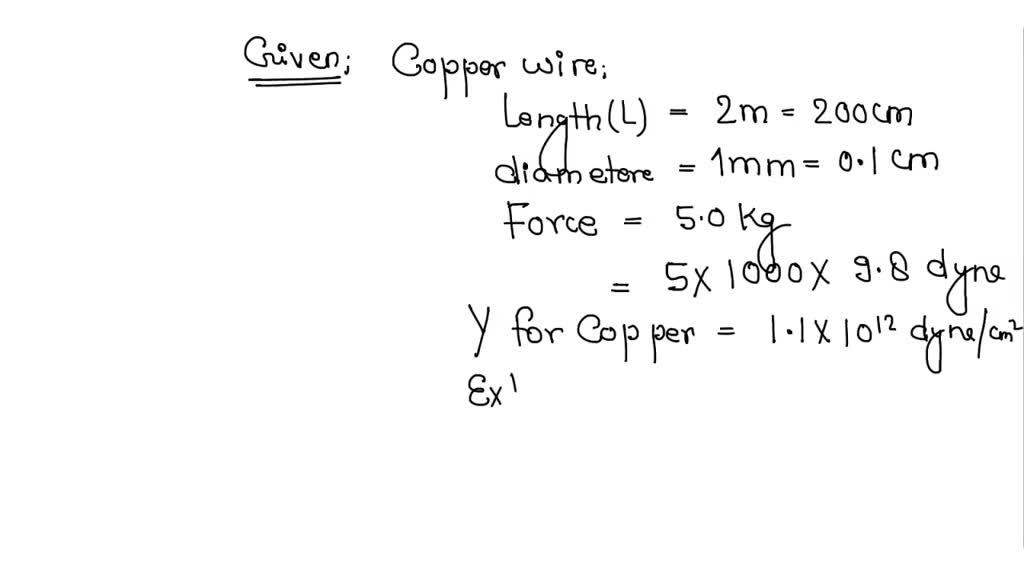 Given; Copper wire;
Length(L) = 2m = 200cm
diametore = 1mm = 0.1 cm
Force = 5.0 kg
= 5X 1000X 9.8 dyne
Y for Copper = 1.1X10¹² dyne/cm²
Ex